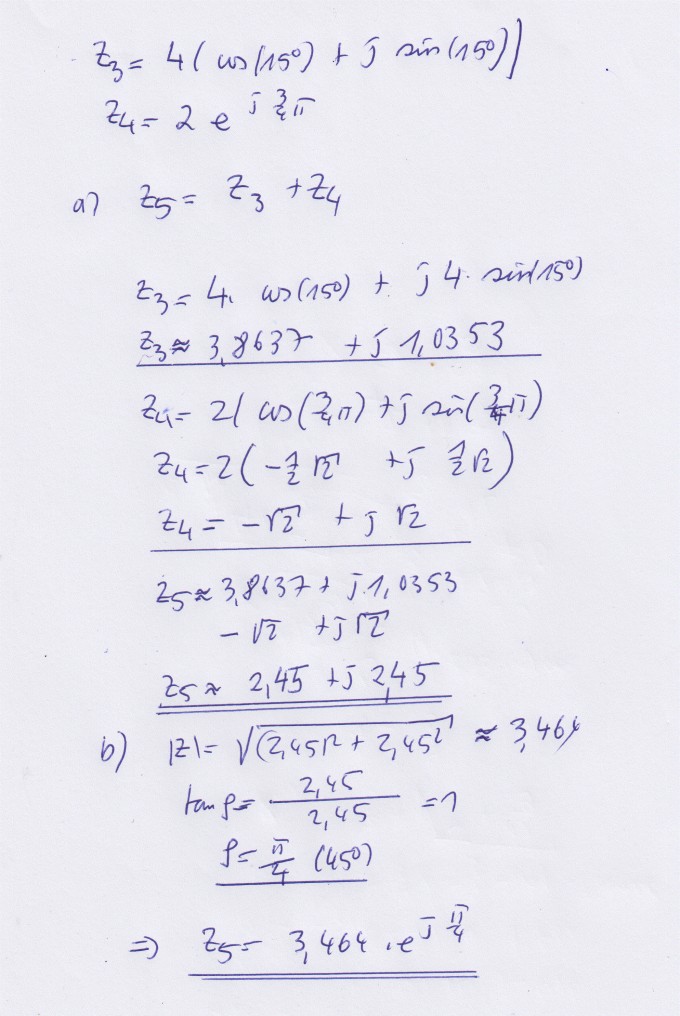 z₃ = 4 ( cos(15°) + j sin(15°))
z₄ = 2 e^(j 3/4 π)
a) z₅ = z₃ + z₄
z₃ = 4 · cos(15°) + j 4 · sin(15°)
z₃ ≈ 3,8637 + j 1,0353
z₄ = 2( cos(3/4 π) + j sin(3/4 π)
z₄ = 2 ( -1/2 √2 + j 1/2 √2 )
z₄ = -√2 + j √2
z₅ ≈ 3,8637 + j · 1,0353
- √2 + j √2
z₅ ≈ 2,45 + j 2,45
b) |z| = √((2,45)² + 2,45²) ≈ 3,464
tan φ = 2,45/2,45 = 1
φ = π/4 (45°)
⇒ z₅ = 3,464 · e^(j π/4)